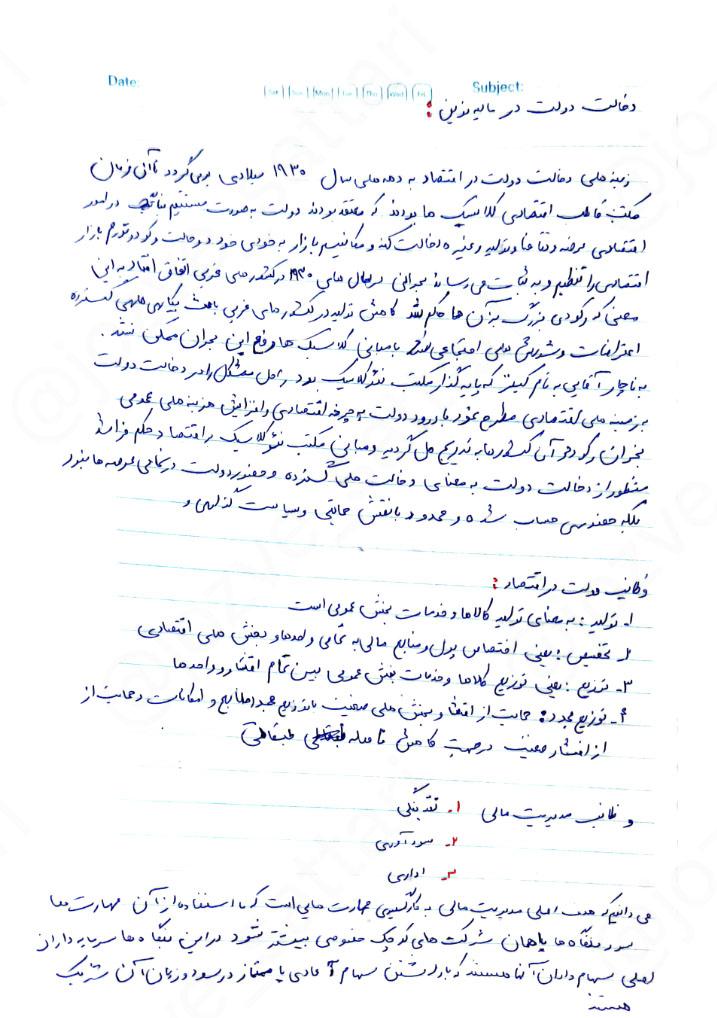 Date:
Subject:
Sat Sun Mon Tue Thu Wed Fri
دخالت دولت در مالیه نوین :
زمینه های دخالت دولت در اقتصاد به دهه های سال ۱۹۳۰ میلادی بر می گردد تا آن زمان
مکتب اقتصادی کلاسیک ها بودند که معتقد بودند دولت به صورت مستقیم در امور
اقتصادی عرضه و تقاضا و تولید و غیره دخالت کند و مکانیسم بازار به خودی خود دخالت و رکود و تورم بازار
اقتصادی را تنظیم و به ثبات می رساند بحرانی در سال های ۱۹۳۰ در کشورهای غربی اتفاق افتاد به این
معنی که رکودی بزرگ بر آن ها حاکم شد کاهش تولید در کشورهای غربی باعث بیکاری های گسترده
اعتراضات و شورش های اجتماعی شد با مبانی کلاسیک ها رفع این بحران ممکن نشد.
به ناچار آقایی به نام کینز که پایه گذار مکتب نئوکلاسیک بود راحل مشکل را در دخالت دولت
به زمینه های اقتصادی مطرح نمود با ورود دولت به چرخه اقتصادی و افزایش هزینه های عمومی
بحران رکود در آن کشورها به تدریج حل گردید و مبانی مکتب نئوکلاسیک را اقتصاد حکم فرما شد
منظور از دخالت دولت به معنای دخالت های گسترده و حضور دولت در تمامی عرصه ها نبود
بلکه حضورس حساب شده و محدود با نقش حمایتی و سیاست گذاری و
وظایف دولت در اقتصاد :
۱- تولید : به معنای تولید کالاها و خدمات بخش عمومی است
۲- تخصیص : یعنی اختصاص پول و منابع مالی به تمامی واحدها و بخش های اقتصادی
۳- توزیع : یعنی توزیع کالاها و خدمات بخش عمومی بین تمام اقشار و واحدها
۴- توزیع مجدد : حمایت از اقشار و بخش های ضعیف با توزیع مجدد منابع و امکانات و حمایت از
از اقشار ضعیف در جهت کاهش فاصله طبقاتی
وظایف مدیریت مالی ۱- نقدینگی
۲- سودآوری
۳- اداری
می دانیم که هدف اصلی مدیریت مالی به کارگیری مهارت هایی است که با استفاده از آن مهارت ها
سود بنگاه ها یا همان شرکت های کوچک خصوصی بیشتر شود در این بنگاه ها سرمایه داران
اصلی سهام داران آنها هستند که با داشتن سهام عادی یا ممتاز در سود و زیان آن شریک
هستند